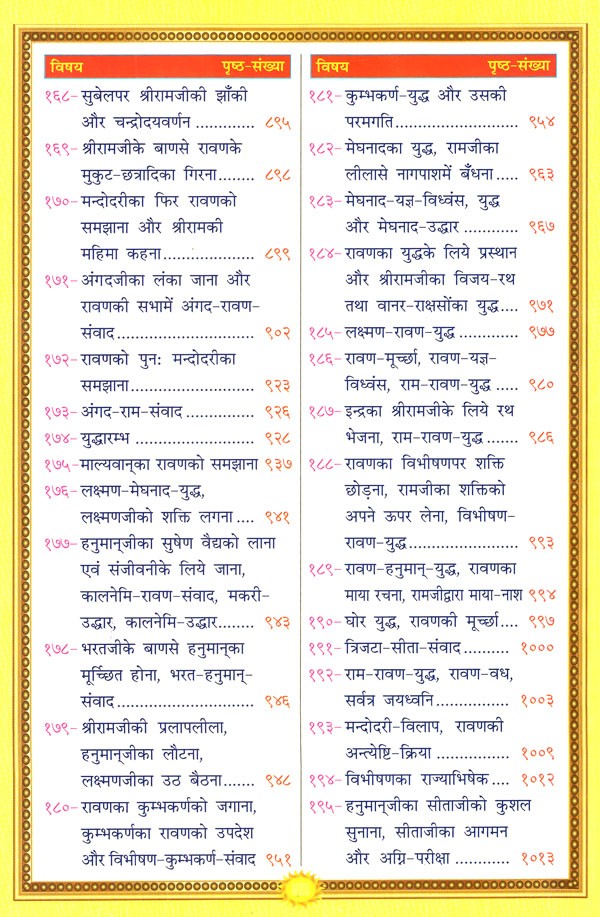 विषय पृष्ठ-संख्या
१६८- सुबेलपर श्रीरामजीकी झाँकी
और चन्द्रोदयवर्णन ............. ८९५
१६९- श्रीरामजीके बाणसे रावणके
मुकुट-छत्रादिका गिरना........ ८९८
१७०- मन्दोदरीका फिर रावणको
समझाना और श्रीरामकी
महिमा कहना.................... ८९९
१७१- अंगदजीका लंका जाना और
रावणकी सभामें अंगद-रावण-
संवाद.............................. ९०२
१७२- रावणको पुनः मन्दोदरीका
समझाना........................... ९२३
१७३- अंगद-राम-संवाद ............... ९२६
१७४- युद्धारम्भ .......................... ९२८
१७५- माल्यवान्‌का रावणको समझाना ९३७
१७६- लक्ष्मण-मेघनाद-युद्ध,
लक्ष्मणजीको शक्ति लगना.... ९४१
१७७- हनुमान्‌जीका सुषेण वैद्यको लाना
एवं संजीवनीके लिये जाना,
कालनेमि-रावण-संवाद, मकरी-
उद्धार, कालनेमि-उद्धार........ ९४३
१७८- भरतजीके बाणसे हनुमान्‌का
मूर्च्छित होना, भरत-हनुमान्-
संवाद.............................. ९४६
१७९- श्रीरामजीकी प्रलापलीला,
हनुमान्‌जीका लौटना,
लक्ष्मणजीका उठ बैठना....... ९४८
१८०- रावणका कुम्भकर्णको जगाना,
कुम्भकर्णका रावणको उपदेश
और विभीषण-कुम्भकर्ण-संवाद ९५१
विषय पृष्ठ-संख्या
१८१- कुम्भकर्ण-युद्ध और उसकी
परमगति........................... ९५४
१८२- मेघनादका युद्ध, रामजीका
लीलासे नागपाशमें बँधना ..... ९६३
१८३- मेघनाद-यज्ञ-विध्वंस, युद्ध
और मेघनाद-उद्धार ............ ९६७
१८४- रावणका युद्धके लिये प्रस्थान
और श्रीरामजीका विजय-रथ
तथा वानर-राक्षसोंका युद्ध.... ९७१
१८५- लक्ष्मण-रावण-युद्ध ............. ९७७
१८६- रावण-मूर्च्छा, रावण-यज्ञ-
विध्वंस, राम-रावण-युद्ध ..... ९८०
१८७- इन्द्रका श्रीरामजीके लिये रथ
भेजना, राम-रावण-युद्ध ....... ९८६
१८८- रावणका विभीषणपर शक्ति
छोड़ना, रामजीका शक्तिको
अपने ऊपर लेना, विभीषण-
रावण-युद्ध........................ ९९३
१८९- रावण-हनुमान्-युद्ध, रावणका
माया रचना, रामजीद्वारा माया-नाश ९९४
१९०- घोर युद्ध, रावणकी मूर्च्छा.... ९९७
१९१- त्रिजटा-सीता-संवाद ........... १०००
१९२- राम-रावण-युद्ध, रावण-वध,
सर्वत्र जयध्वनि .................. १००३
१९३- मन्दोदरी-विलाप, रावणकी
अन्त्येष्टि-क्रिया .................. १००९
१९४- विभीषणका राज्याभिषेक .... १०१२
१९५- हनुमान्‌जीका सीताजीको कुशल
सुनाना, सीताजीका आगमन
और अग्नि-परीक्षा .............. १०१३